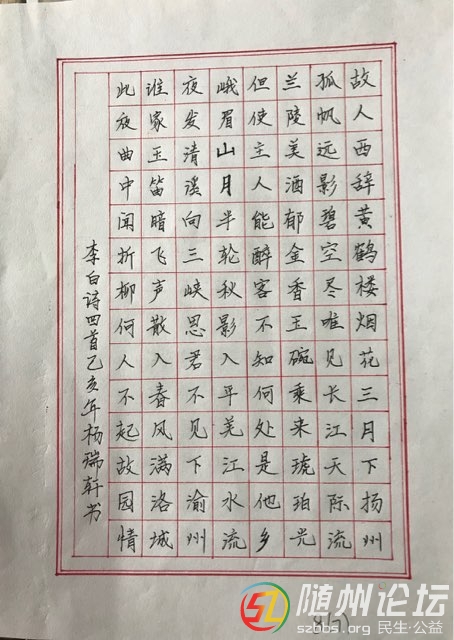 故人西辞黄鹤楼烟花三月下扬州
孤帆远影碧空尽唯见长江天际流
兰陵美酒郁金香玉碗乘来琥珀光
但使主人能醉客不知何处是他乡
峨眉山月半轮秋影入平羌江水流
夜发清溪向三峡思君不见下渝州
谁家玉笛暗飞声散入春风满洛城
此夜曲中闻折柳何人不起故园情
李白诗四首乙亥年杨瑞轩书
随州论坛
szbbs.org 民生·公益